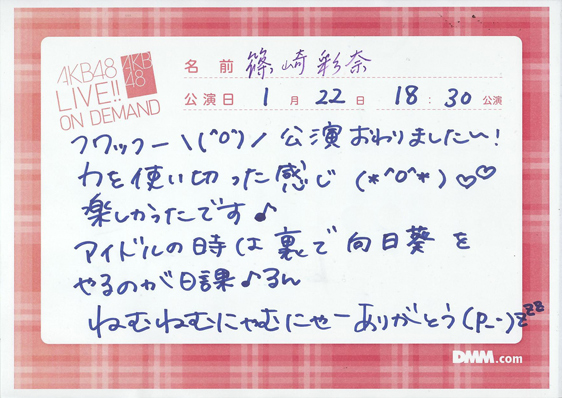 AKB48
LIVE!!
ON DEMAND
AKB
48
名前 篠崎彩奈
公演日 1月22日 18:30公演
フワッフー\(^o^)/公演おわりましたい!
力を使い切った感じ(*^o^*)♡♡
楽しかったです♪
アイドルの時は裏で向日葵を
やるのが日課♪るん
ねむねむにゃむにゃーありがとう(p_-)zzzz
DMM.com